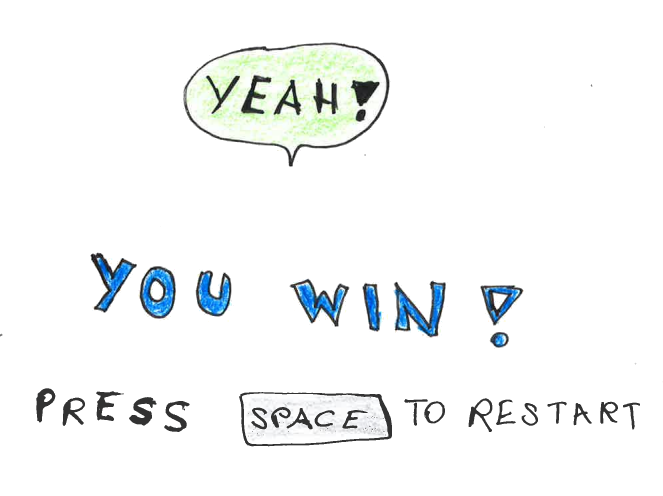 YEAH!
YOU WIN!
PRESS SPACE TO RESTART